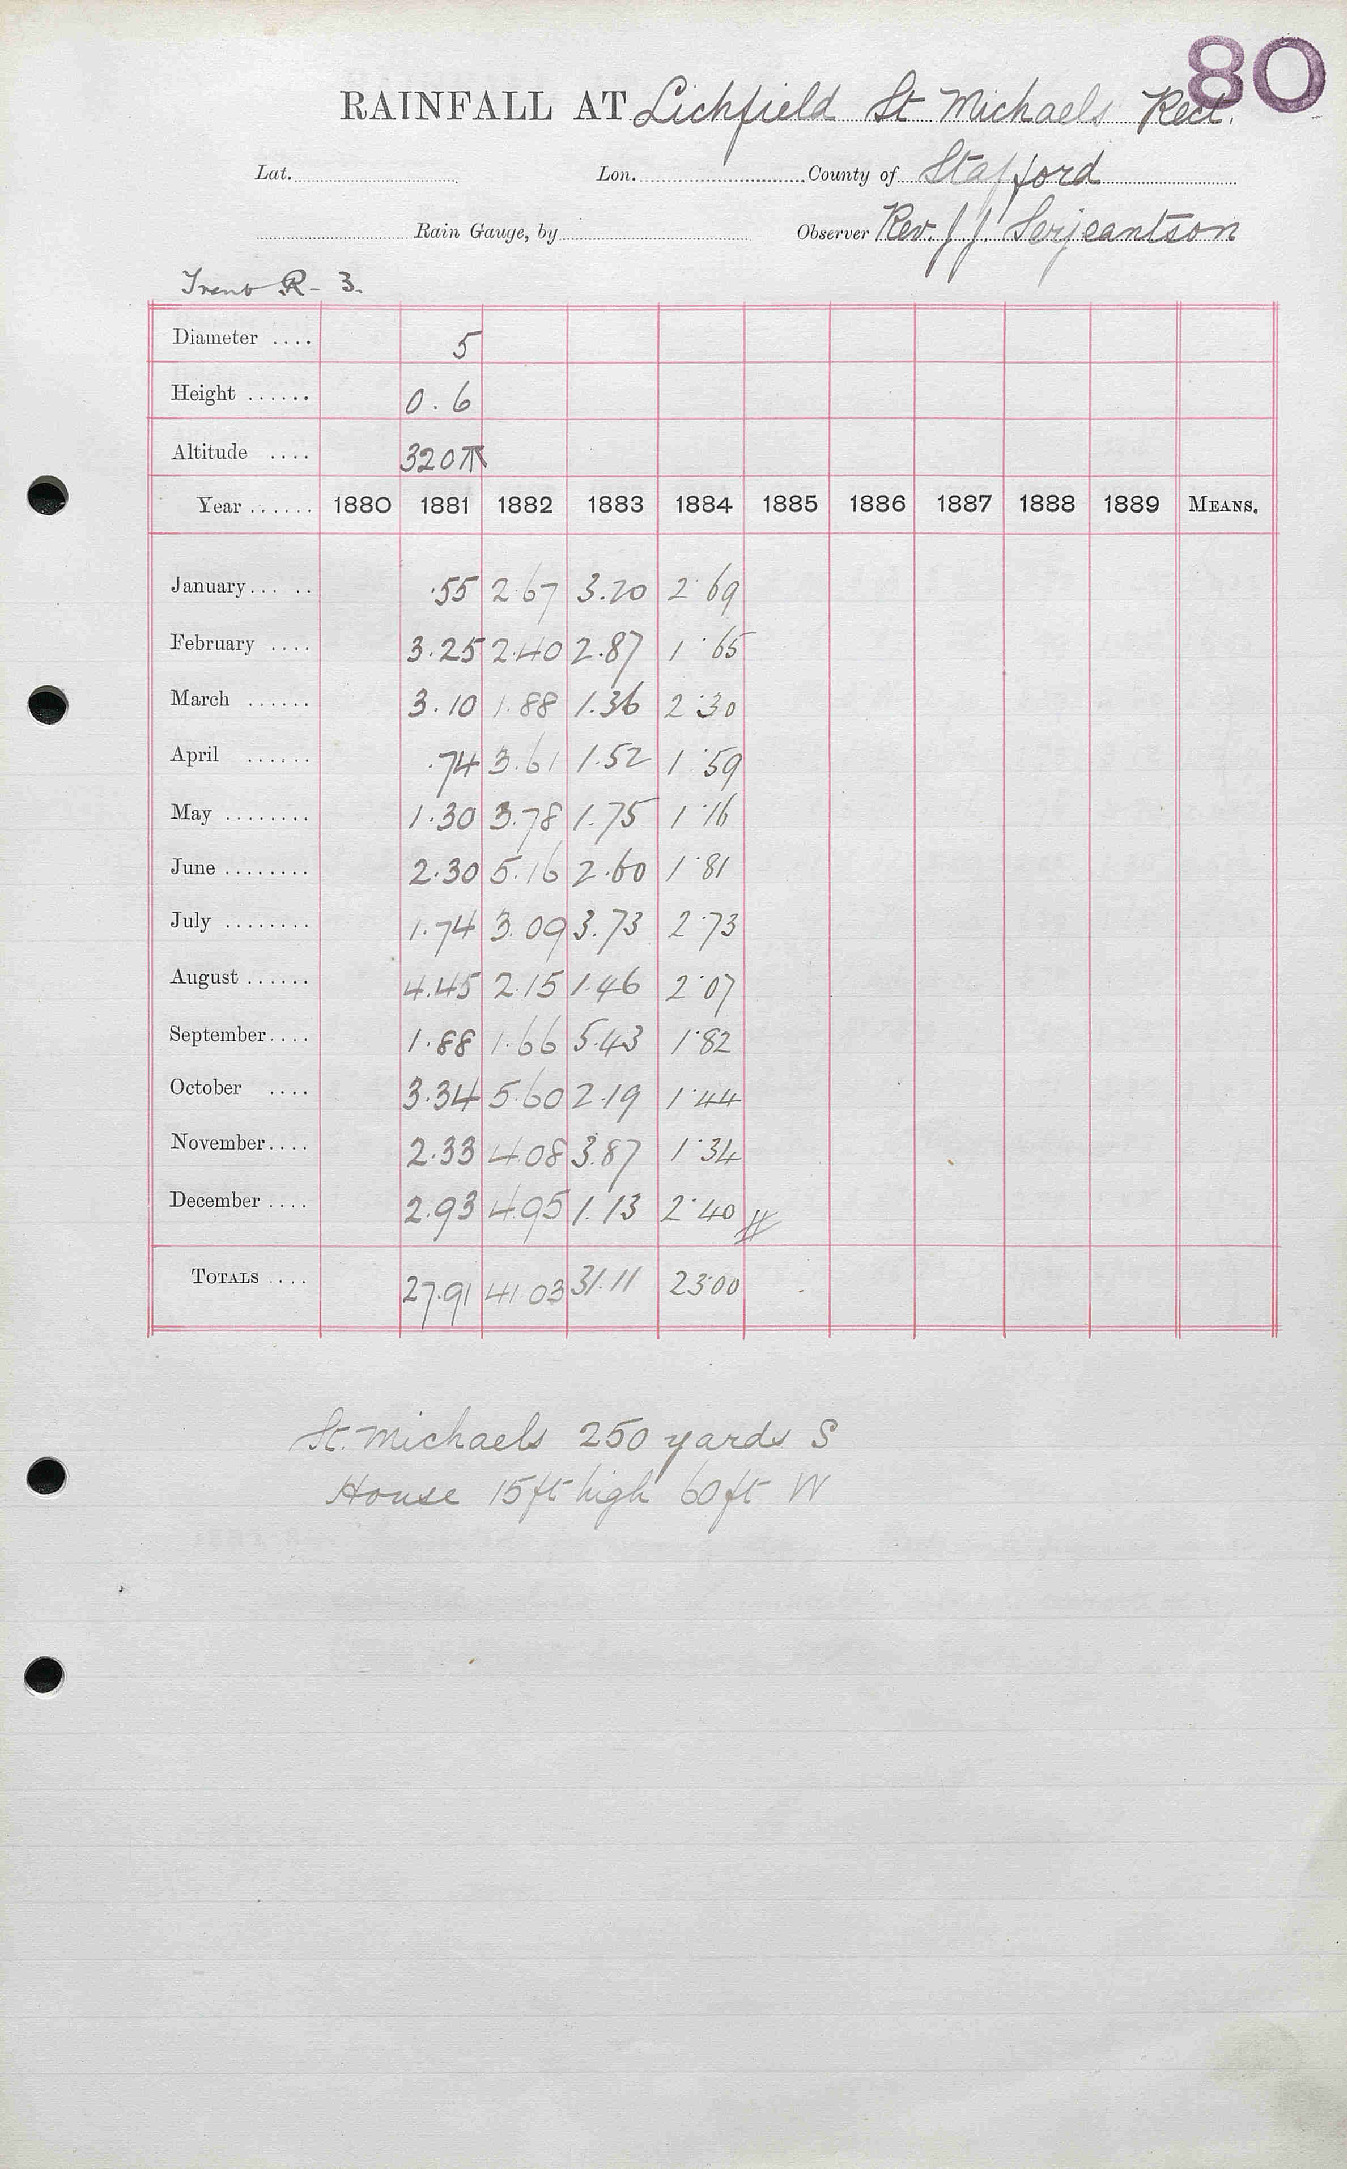 80
RAINFALL AT Lichfield St Michaels Rect.
Lat. Lon. County of Stafford
Rain Gauge, by Observer Rev. J J Serjeantson
Trent R - 3.
Diameter .... 5
Height ...... 0.6
Altitude .... 320
Year ...... 1880 1881 1882 1883 1884 1885 1886 1887 1888 1889 MEANS.
January ... .. .55 2.67 3.20 2.69
February .... 3.25 2.40 2.87 1.65
March ...... 3.10 1.88 1.36 2.30
April ...... .74 3.61 1.52 1.59
May ........ 1.30 3.78 1.75 1.16
June ........ 2.30 5.16 2.60 1.81
July ........ 1.74 3.09 3.73 2.73
August ...... 4.45 2.15 1.46 2.07
September.... 1.88 1.66 5.43 1.82
October .... 3.34 5.60 2.19 1.44
November.... 2.33 4.08 3.87 1.34
December .... 2.93 4.95 1.13 2.40
TOTALS .... 27.91 41.03 31.11 23.00
St. Michaels 250 yards S
House 15ft high 60ft W